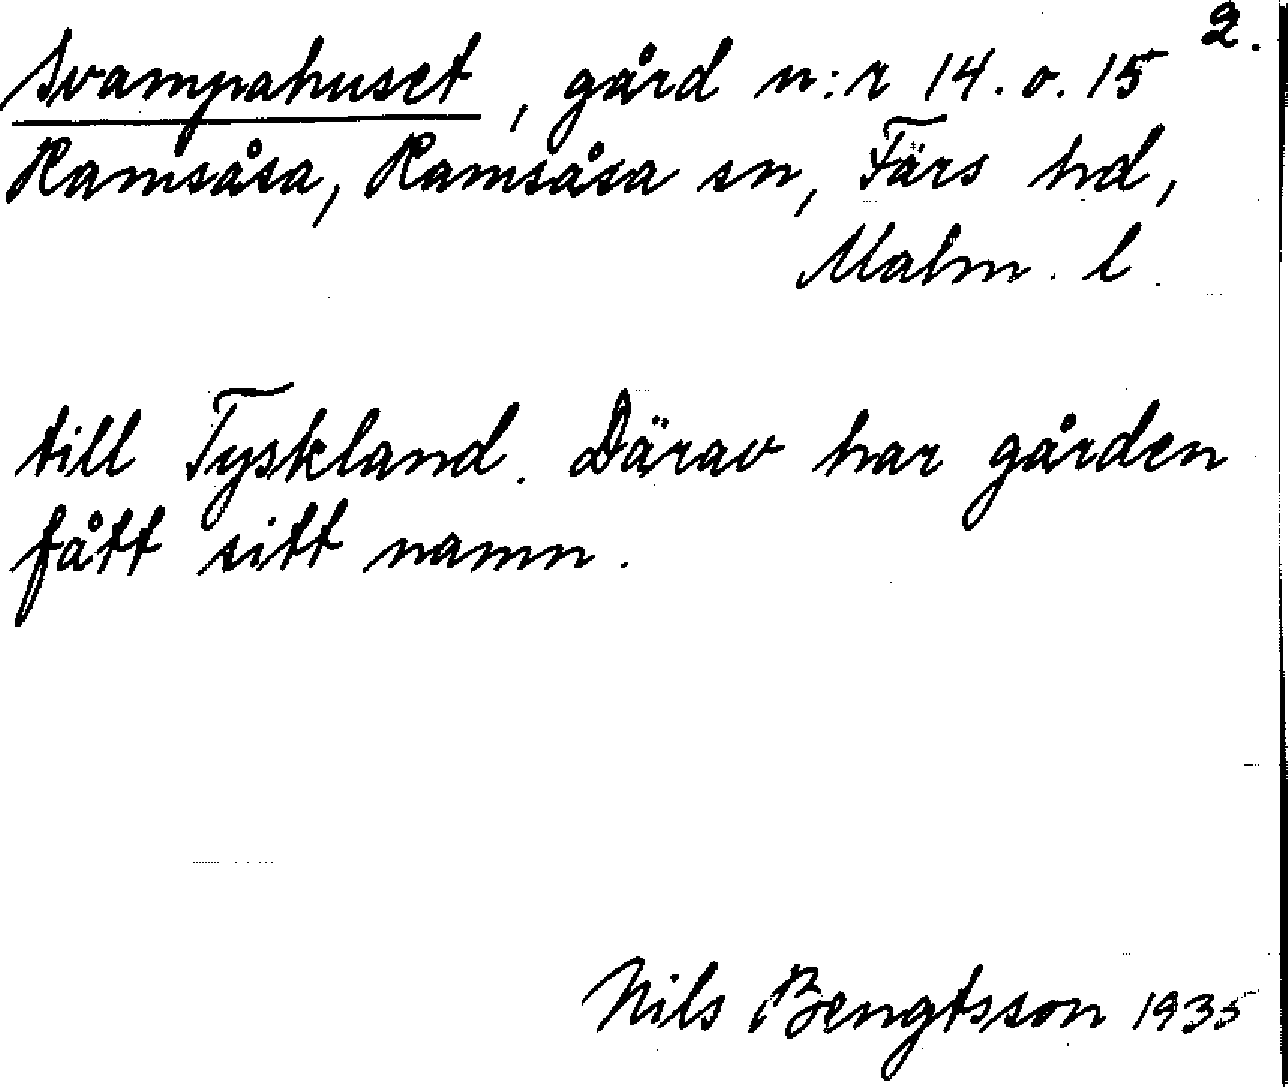 2.
Svampahuset, gård n:r 14. o. 15
Ramsåsa, Ramsåsa sn, Färs hd,
Malm. l.
till Tyskland. Därav har gården
fått sitt namn.
Nils Bengtsson 1935